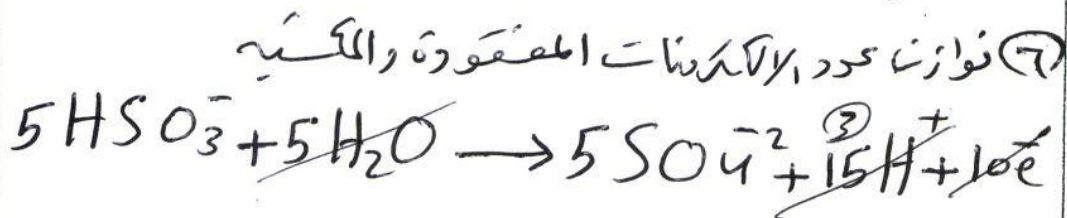 ٦ نوازن عدد الالكترونات المفقودة والمكتسبه
5HSO₃⁻ + 5H₂O → 5SO₄⁻² + 15H⁺ + 10e⁻
3